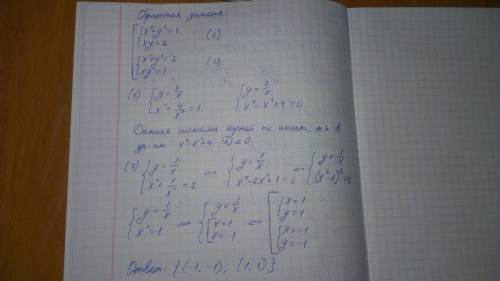 Обратная замена
{x²+y²=1
{xy=2 (1)
{x²+y²=2
{xy=1 (2)
(1) {y=2/x {x²+4/x²=1 {y=2/x {x⁴-x²+4=0
Данная система корней не имеет, т.к в
ур-ии x⁴-x²+4 D<0.
(2) {y=1/x {x²+1/x²=2 ⇔ {y=1/x {x⁴-2x²+1=0 ⇔ {y=1/x {(x²-1)²=0
{y=1/x {x²=1 ⇔ {y=1/x [x=1 [x=-1 ⇔ [{x=1 {y=1 [{x=-1 {y=-1
Ответ: {(-1;-1), (1;1)}